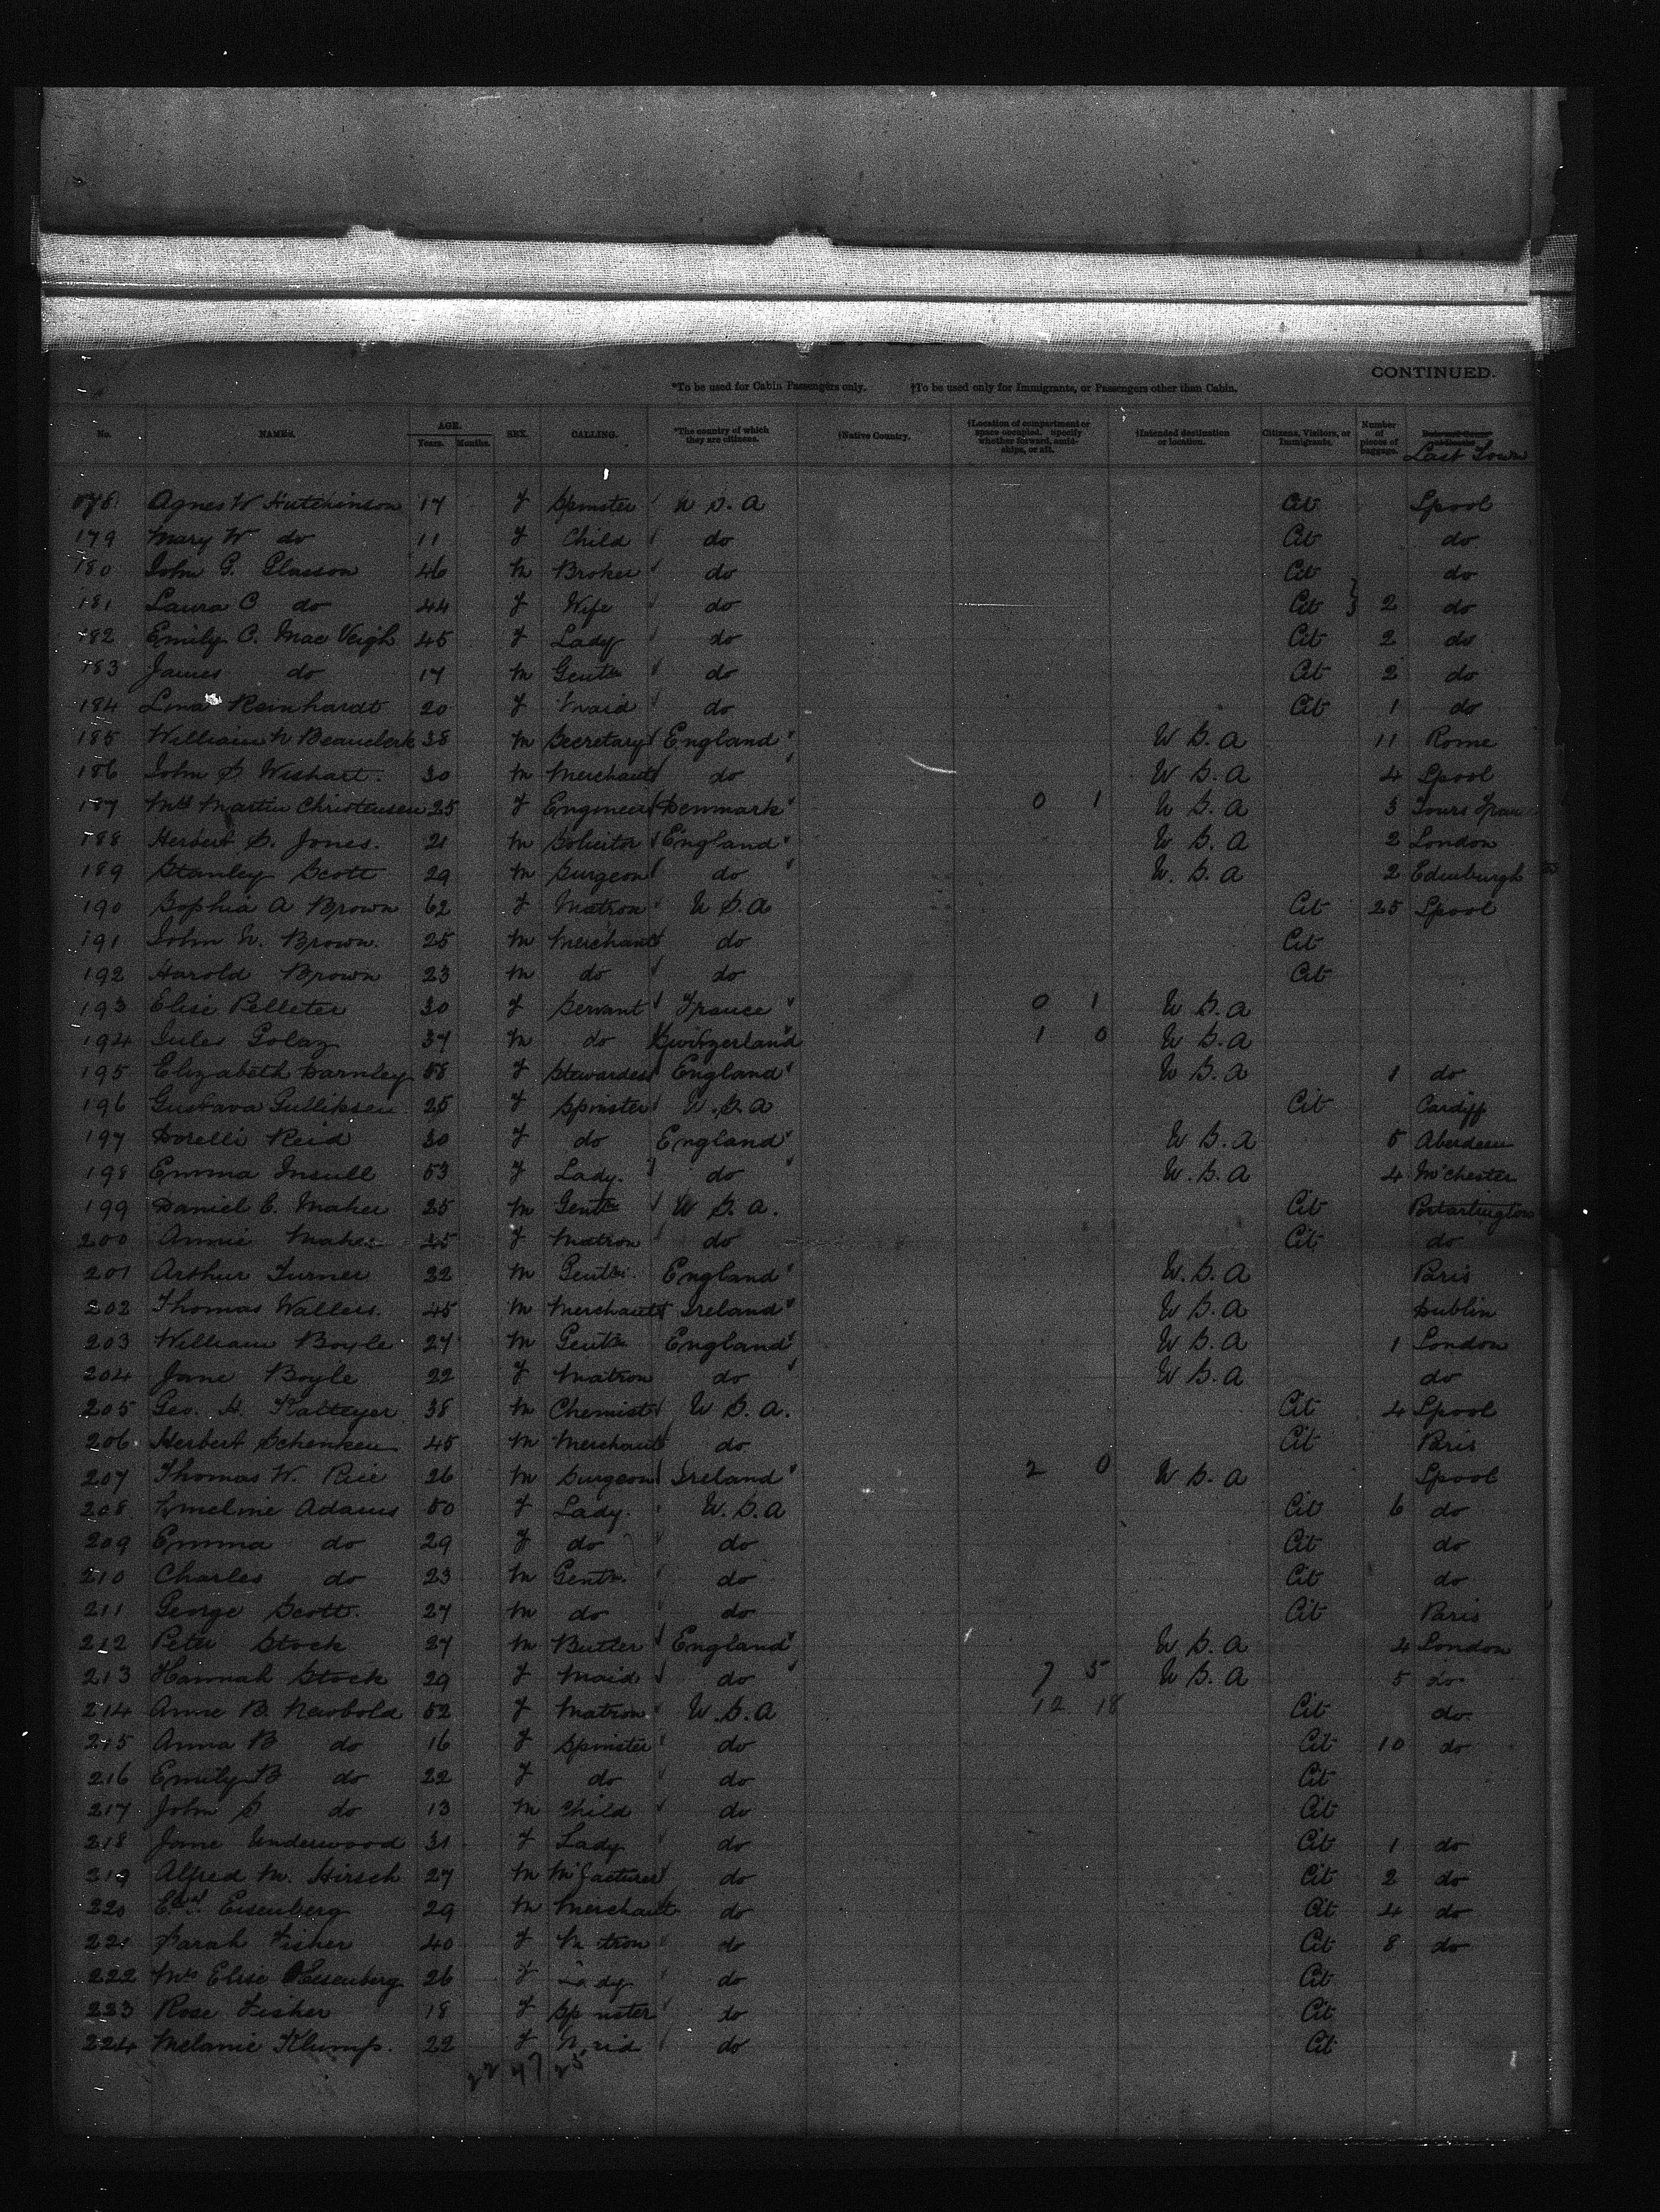 CONTINUED.
*To be used for Cabin Passengers only. †To be used only for Immigrants, or Passengers other than Cabin.
No. NAMES. AGE. Years. Months. SEX. CALLING. *The country of which they are citizens. †Native Country. †Location of compartment or space occupied. specify whether forward, amid-ships, or aft. †Intended destination or location. Citizens, Visitors, or Immigrants. Number of pieces of baggage. Last Town
178 Agnes W Hutchinson 17 F Spinster U S. A Cit Lpool
179 Mary W do 11 F Child do Cit do
180 John G. Glasson 46 M Broker do Cit do
181 Laura C do 44 F Wife do Cit 2 do
182 Emily C. Mac Veigh 45 F Lady do Cit 2 do
183 James do 17 M Gentn do Cit 2 do
184 Lina Reinhardt 20 F Maid do Cit 1 do
185 William N Beauclerk 38 M Secretary England U S. A 11 Rome
186 John S Wishart. 30 M Merchant do U S. A 4 Lpool
187 Mrs Martin Christensen 25 F Engineer Denmark 0 1 U S. A 3 Tours
188 Herbert S. Jones. 21 M Solicitor England U S. A 2 London
189 Stanley Scott 29 M Surgeon do U. S. A 2 Edinburgh
190 Sophia A Brown 62 F Matron U S. A Cit 25 Lpool
191 John N. Brown. 25 M Merchant do Cit
192 Harold Brown 23 M do do Cit
193 Elise Pelleter 30 F Servant France 0 1 U S. A
194 Jules Golaz 37 M do Switzerland 1 0 U S. A
195 Elizabeth Darnley 58 F Stewardess England U S. A 1 do
196 Gustava Gulliksen 25 F Spinster U. S. A Cit Cardiff
197 Dorelli Reid 30 F do England U S. A 5 Aberdeen
198 Emma Insull 53 F Lady. do U. S. A 4 M'chester
199 Daniel E. Maher 25 M Gentn U S. A. Cit Portarlington
200 Annie Maher F Matron do Cit do
201 Arthur Turner 22 M Gentn. England U. S. A Paris
202 Thomas Wallers. 45 M Merchant Ireland U S. A Dublin
203 William Boyle 27 M Gentn England U S. A 1 London
204 Jane Boyle 22 F Matron do U S. A do
205 Geo. H. Kalteyer 38 M Chemist U S. A. Cit 4 Lpool
206 Herbert Schenken 45 M Merchant do Cit Paris
207 Thomas W. Rice 26 M Surgeon Ireland 2 0 U S. A Lpool
208 Emeline Adams 50 F Lady. U. S. A Cit 6 do
209 Emma do 29 F do do Cit do
210 Charles do 23 M Gentn. do Cit do
211 George Scott. 27 M do do Cit Paris
212 Peter Stock 27 M Butler England U S. A 4 London
213 Hannah Stock 29 F Maid do 7 5 U S. A 5 do
214 Anne B. Newbold 52 F Matron U. S. A 12 18 Cit do
215 Anna B do 16 F Spinster do Cit 10 do
216 Emily B do 22 F do do Cit
217 John S do 13 M Child do Cit
218 Jane Underwood 31 F Lady do Cit 1 do
219 Alfred M. Hirsch 27 M M'facturer do Cit 2 do
220 Edwd. Eisenberg 29 M Merchant do Cit 4 do
221 Sarah Fisher 40 F Matron do Cit 8 do
222 Mrs Elise Eisenberg 26 F Lady do Cit
223 Rose Fisher 18 F Spinster do Cit
224 Melanie Klumps. 22 F Maid do Cit
22 47 25